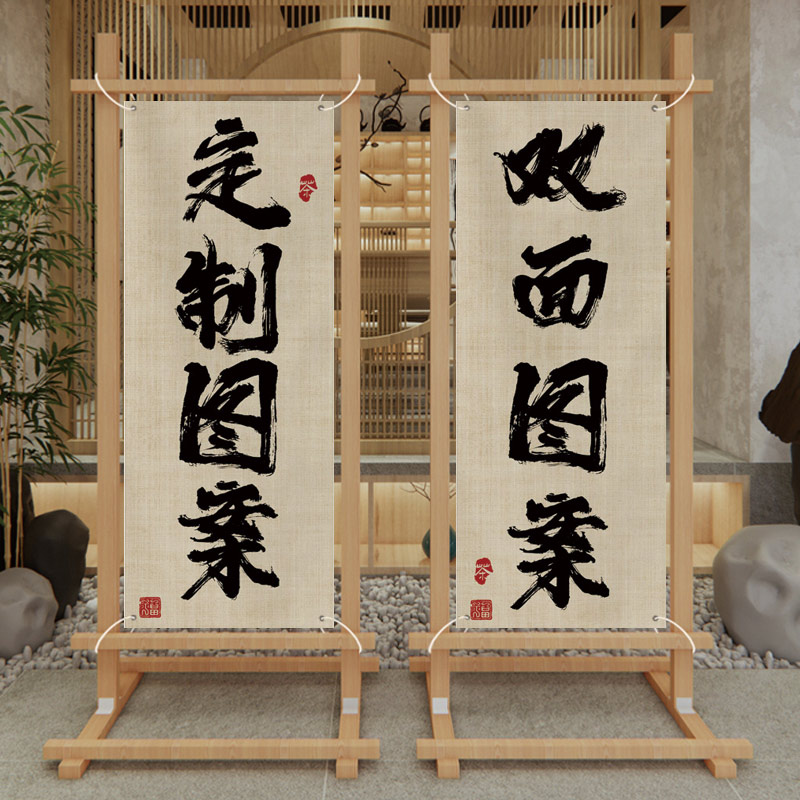 定制图案
茶
双面图案
茶